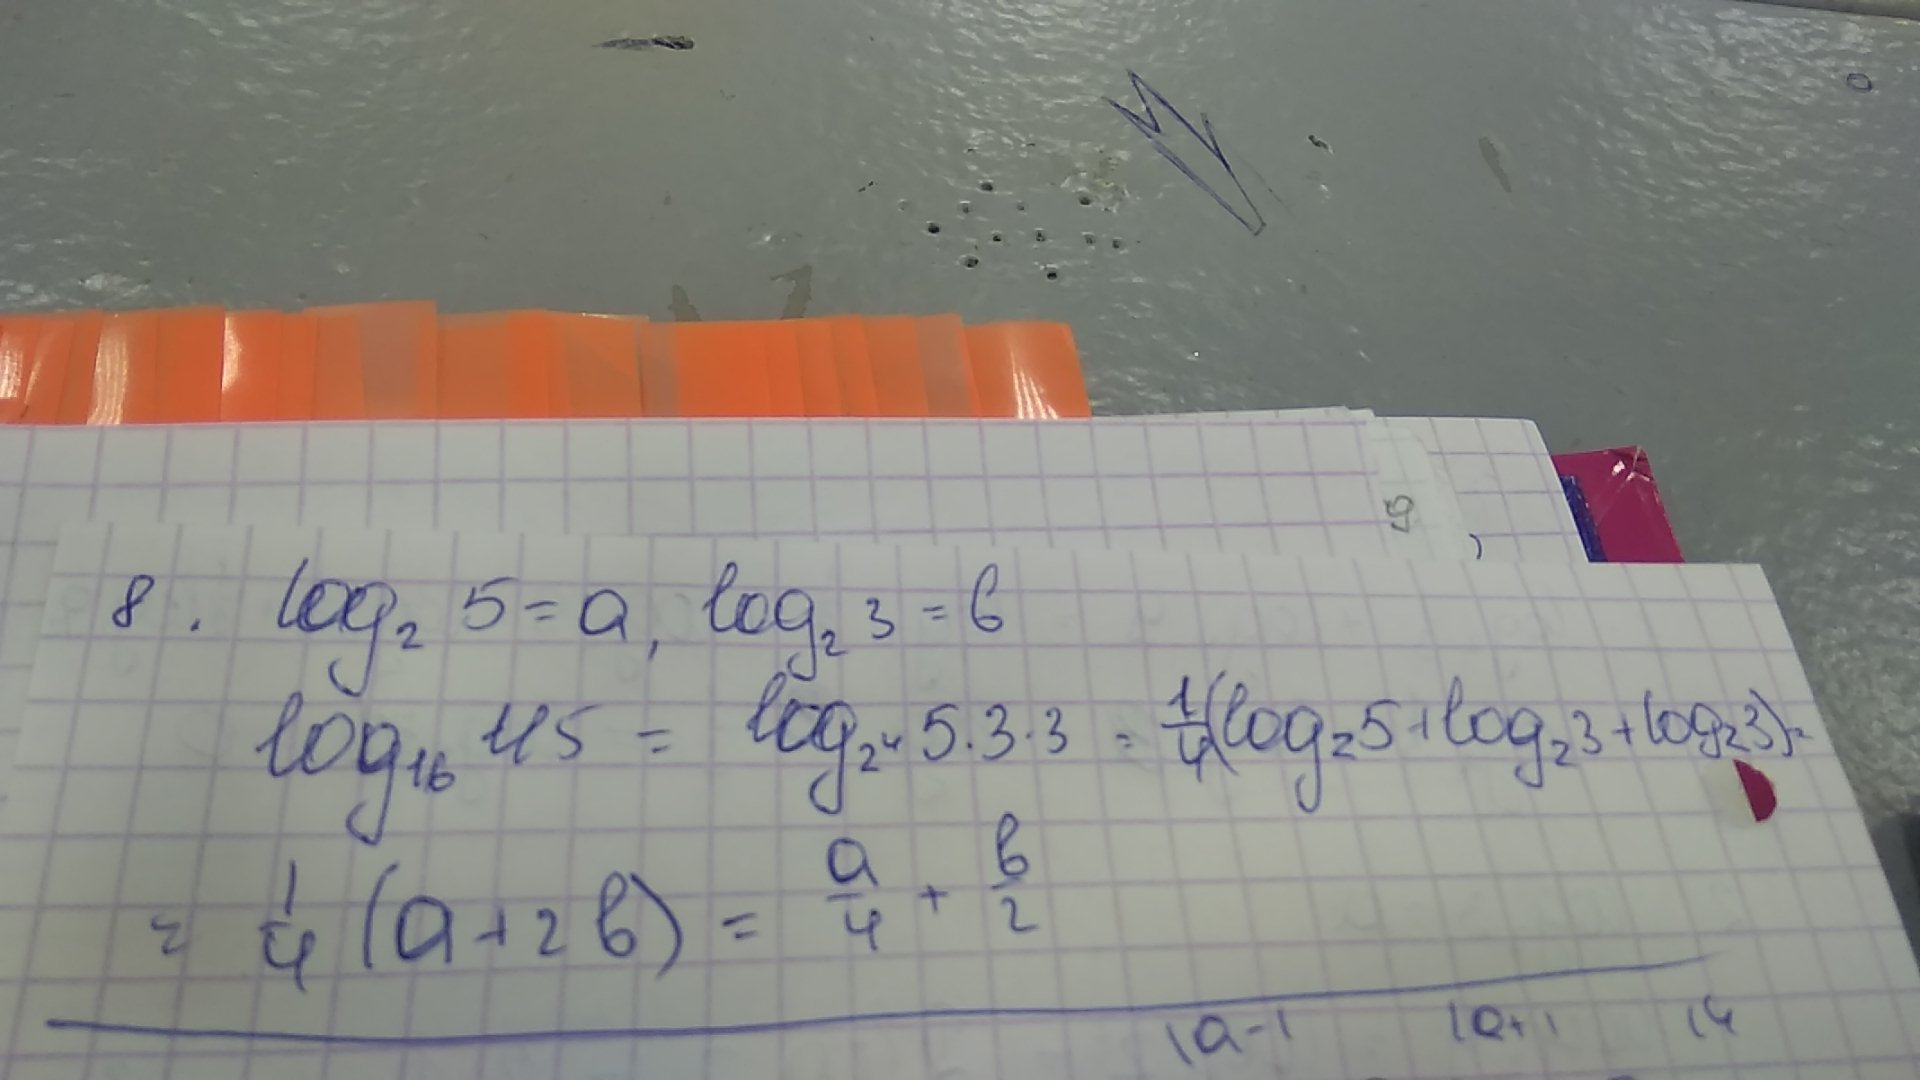 9
8. log₂ 5 = a, log₂ 3 = b
log₁₆ 45 = log₂⁴ 5·3·3 = 1/4 (log₂5 + log₂3 + log₂3) =
= 1/4 (a + 2b) = a/4 + b/2
|a-1 |a+1 14